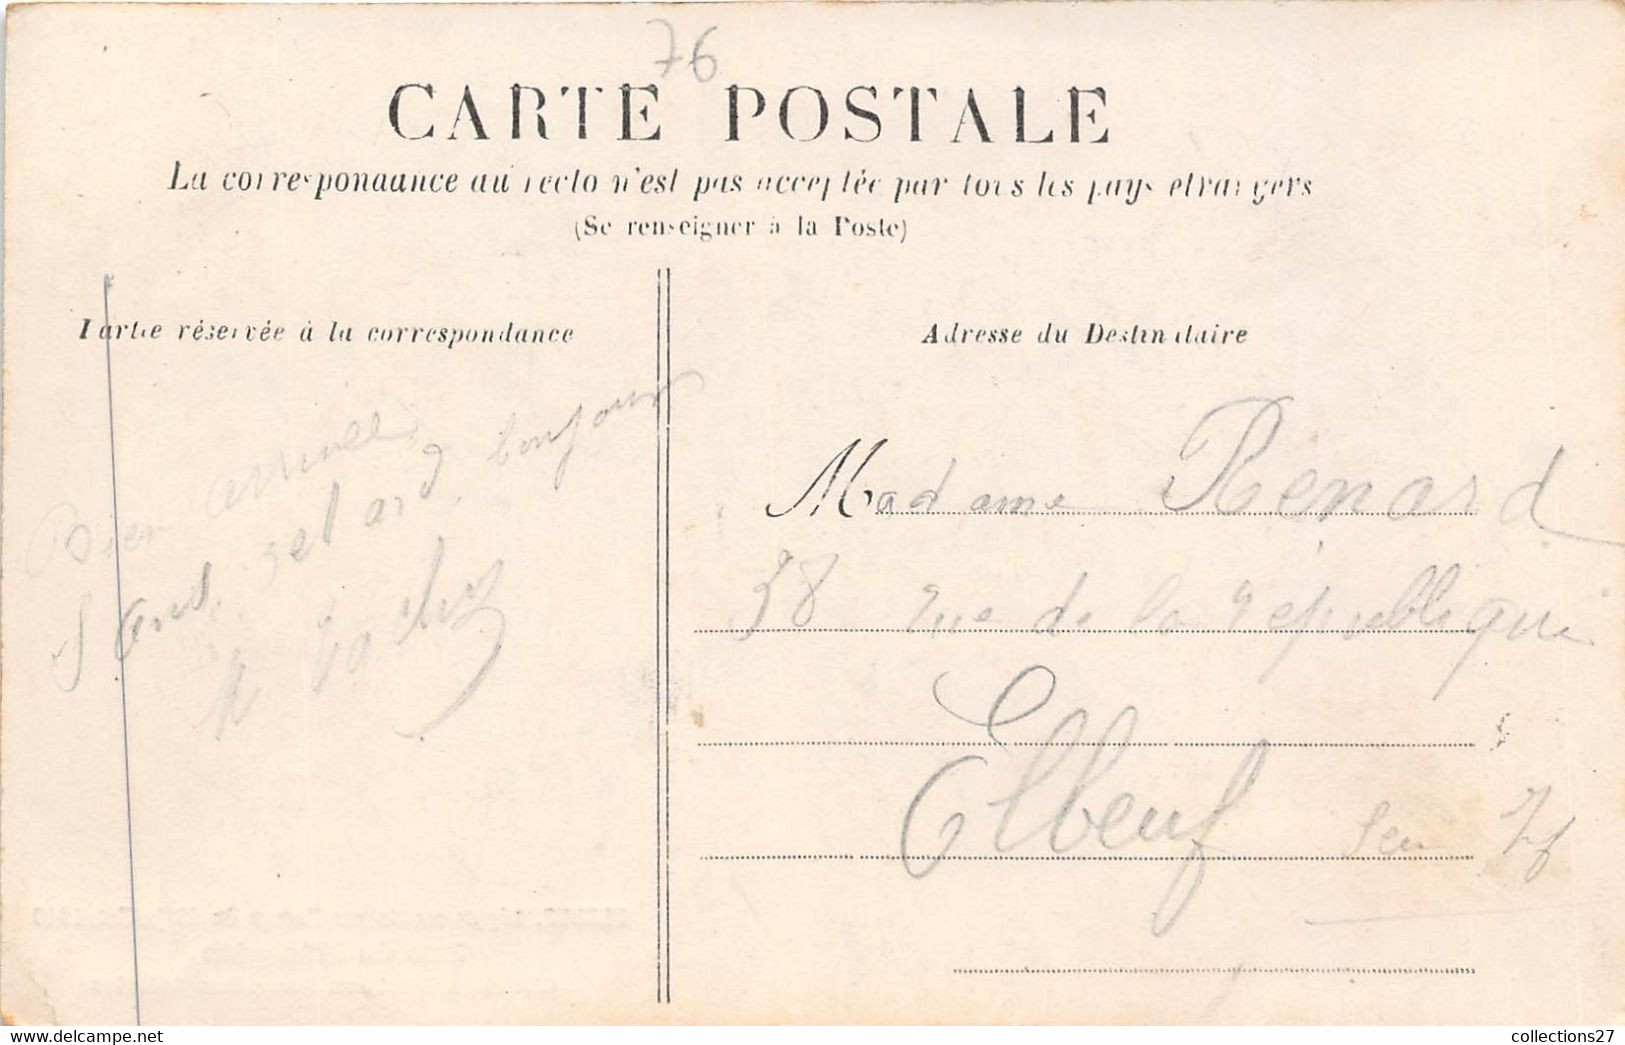 76
CARTE POSTALE
La correspondance au recto n'est pas acceptée par tous les pays etrangers
(Se renseigner à la Poste)
Partie réservée à la correspondance
Adresse du Destinataire
Bien arrivée
Sans retard bonjour
Madame Renard
38 rue de la république
Elbeuf
collections27